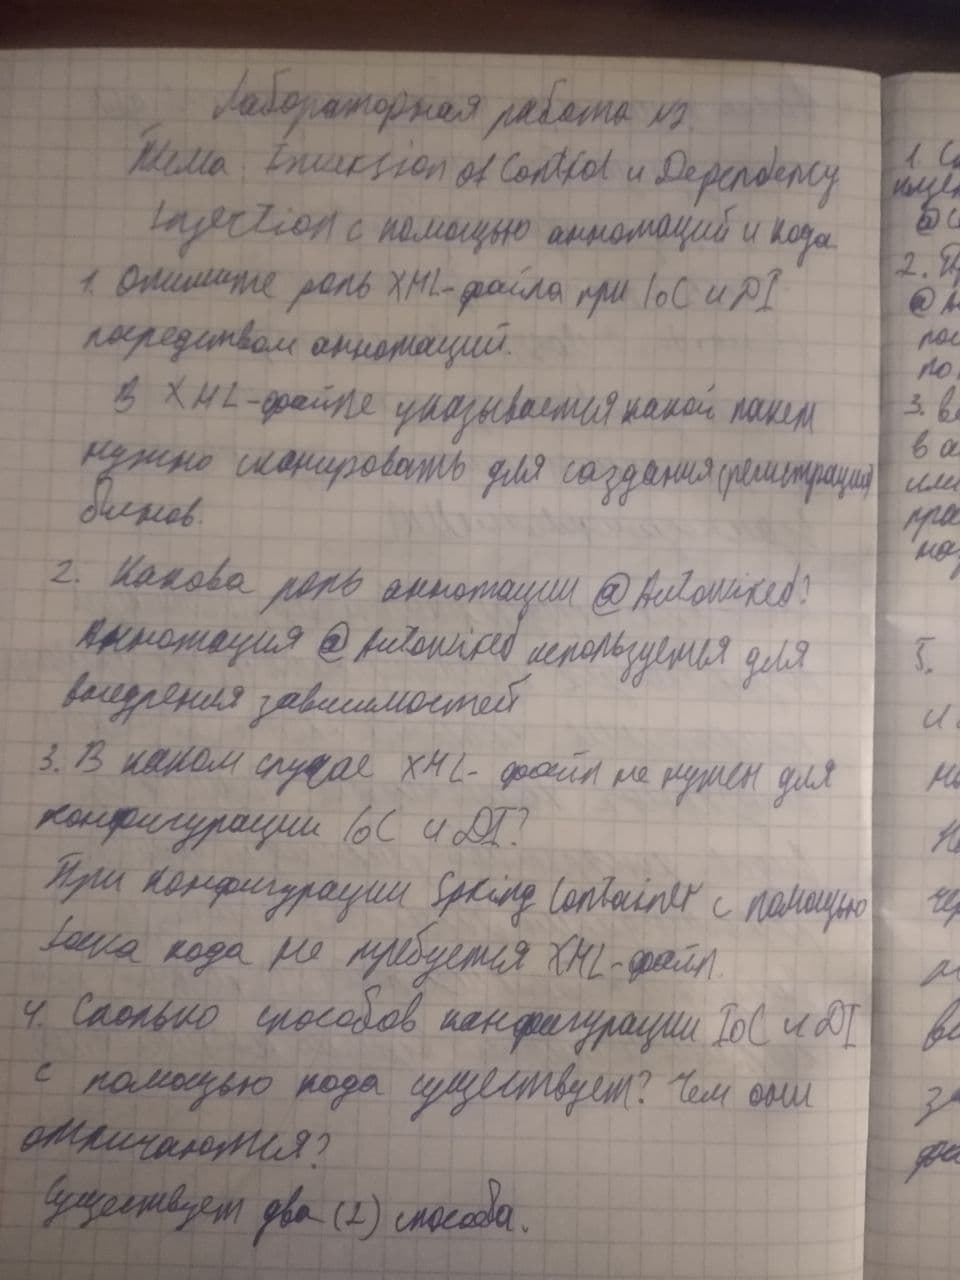 Лабораторная работа №2.
Тема: Inversion of Control и Dependency
Injection с помощью аннотаций и кода
1. Опишите роль XML-файла при IoC и DI
посредством аннотаций.
В XML-файле указывается какой пакет
нужно сканировать для создания (регистрации)
бинов.
2. Какова роль аннотации @Autowired?
Аннотация @Autowired используется для
внедрения зависимостей
3. В каком случае XML-файл не нужен для
конфигурации IoC и DI?
При конфигурации Spring Container с помощью
Java кода не требуется XML-файл.
4. Сколько способов конфигурации IoC и DI
с помощью кода существует? Чем они
отличаются?
Существует два (2) способа.
1.
2.
3.
в
или
5.
и